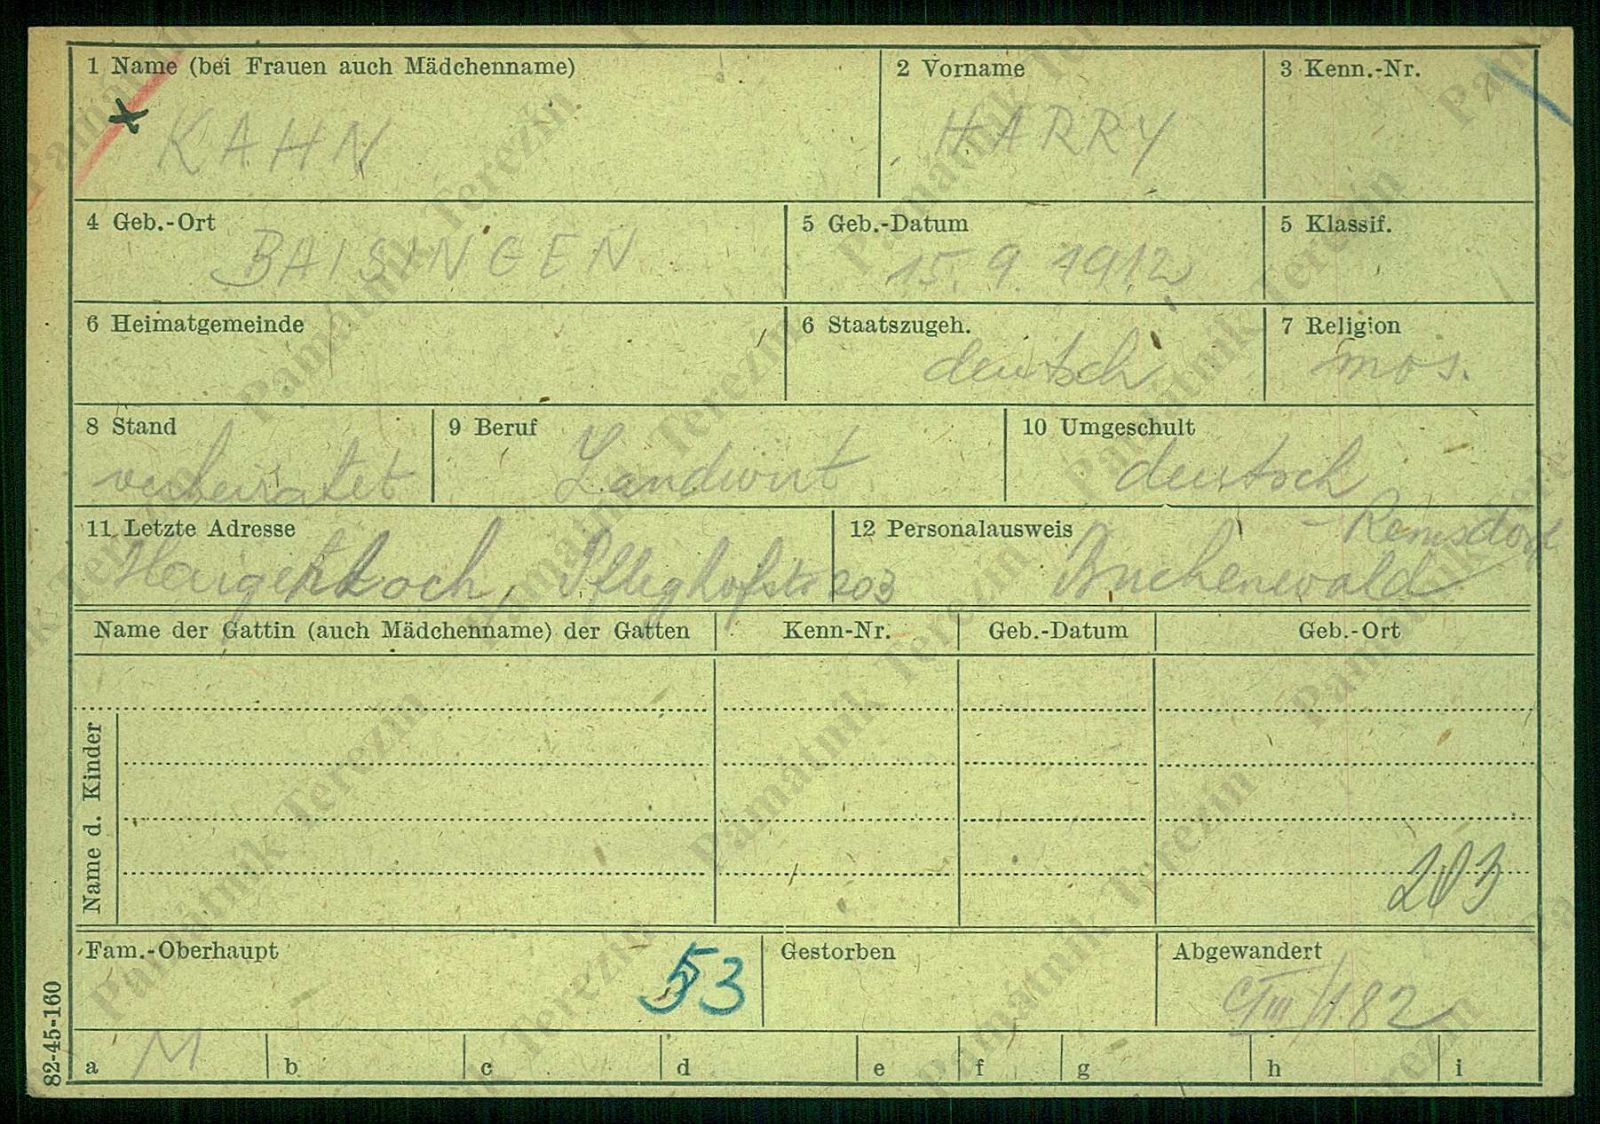 1 Name (bei Frauen auch Mädchenname)
KAHN
2 Vorname
HARRY
3 Kenn.-Nr.
4 Geb.-Ort
BAISINGEN
5 Geb.-Datum
15. 9. 1912
5 Klassif.
6 Heimatgemeinde
6 Staatszugeh.
deutsch
7 Religion
mos.
8 Stand
verheiratet
9 Beruf
Landwirt
10 Umgeschult
deutsch
11 Letzte Adresse
Haigerloch, Pfleghofstr 203
12 Personalausweis
Buchenwald - Remsdorf
Name der Gattin (auch Mädchenname) der Gatten
Kenn-Nr.
Geb.-Datum
Geb.-Ort
Name d. Kinder
203
Fam.-Oberhaupt
53
Gestorben
Abgewandert
/182
82-45-160
a M b c d e f g h i
Památník Terezín